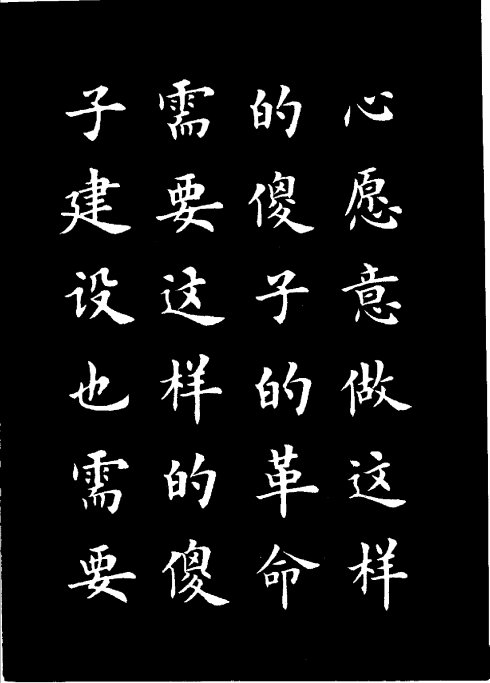 心愿意做这样
的傻子的革命
需要这样的傻
子建设也需要